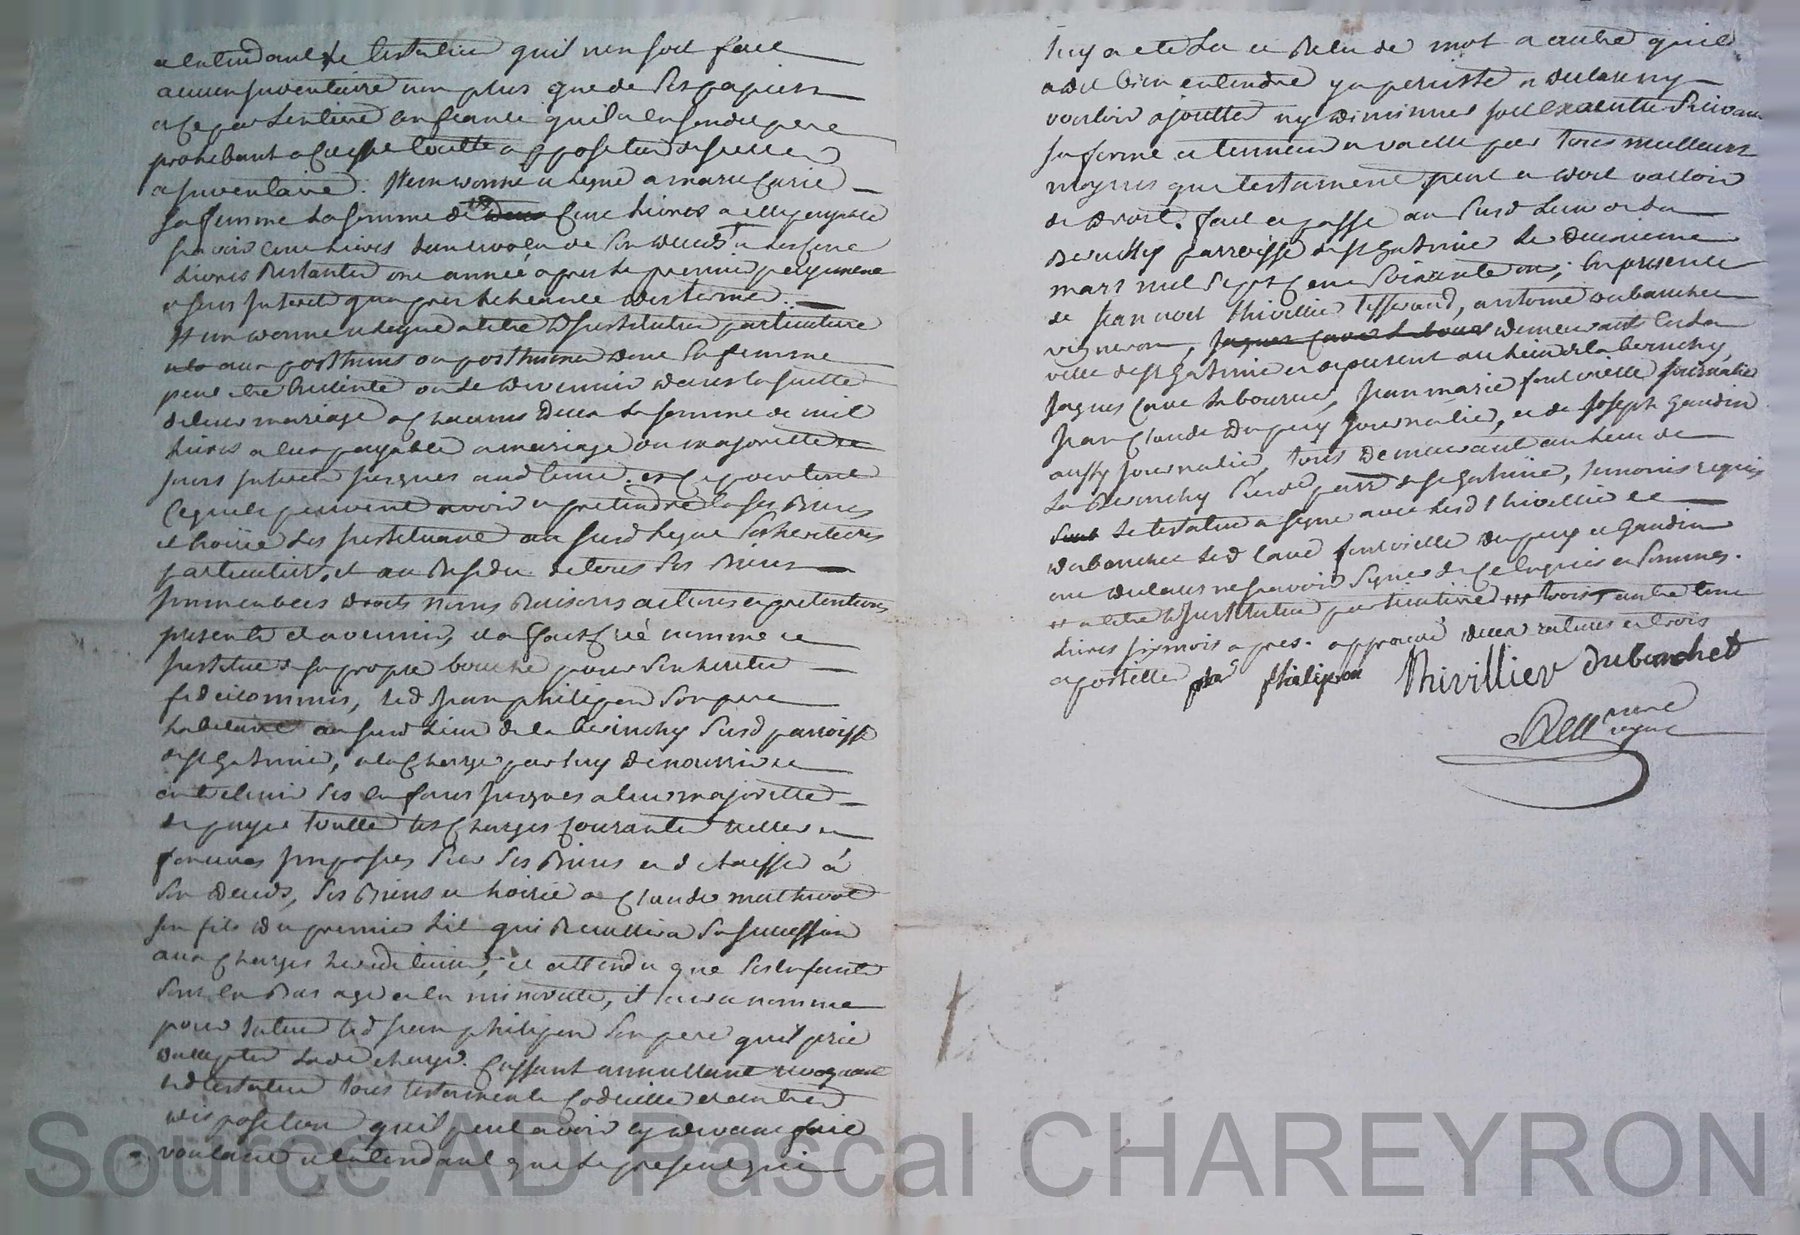 a lentendant le testateur quil nen soit fait
aucun Inventaire non plus que de ses papiers
et ce par lentiere confiance quil a en sond pere
prohibant a cet effet toutte apposition de scellés
et Inventaire. Item donne et legue a marie Carie
sa femme la somme de cent livres a elle payable
savoir cent livres dans
livres restantes une année apres le premier payement
et sans Interet qu'apres lecheance des termes.
Item donne et legue a titre d'Institution particuliere
aux posthumes ou posthume dont sa femme
peut etre enceinte ou le devenir dans la suitte
de leur mariage a chacuns deux la somme de mil
livres a eux payable a mariage ou majoritté
sans Interet jusques aud tems. et ce pour tout
ce quils peuvent avoir et pretendre en ses Biens
et hoirie les Instituant au susd legue ses heritiers
particuliers. et au Residu de tous ses Biens
Immeubles droits noms Raisons actions et pretentions
presents et a venirs, il a fait Creé nommé et
Institué de sa propre bouche pour son heritier
fideicommis, led Jean philipon son pere
habitant au susd lieu de la beruchy susd parroisse
de st Galmier, a la Charge par luy de nourrir et
entretenir ses enfans Jusques a leur majoritté
de payer toutte les Charges Courante reelles et
foncieres Imposées sur ses Biens et
son deceds, ses Biens et hoirie a Claude
son fils du premier lit qui Recullira sa succession
aux Charges hereditaires, et attendu que ses enfants
sont en Bas age et en minoritté, il leur a nommé
pour tuteur led Jean philipon son pere quil prie
daccepter lade charge. Cassant annullant revoquant
led testateur tous testaments Codicille et autres
disposition quil peut avoir cy devant fait
voulant et entendant que le present qui
luy a eté lu et Relu de mot a autre quil
a dit bien entendre y a persisté et declaré ny
vouloir ajoutter ny diminuer soit executté suivant
sa forme et teneur et vaille par tous meilleurs
moyens que testament peut et doit valloir
de droit. fait et passé au susd lieu de la
Beruchy parroisse de st Galmier le deuxieme
mars mil sept cent soixante ; En presence
de Jean noel thivillier tisserand, antoine dubanchet
vigneron, demeurants en lad
ville de st Galmier et de present au lieu de la beruchy,
Jaques Cave laboureur, Jean marie fontvielle Journalier
Jean Claude Dupuy Journalier, et de Joseph Gaudin
aussy Journalier, tous demeurant au lieu de
la Beruchy susde parr de st Galmier, temoins requis
le testateur a signé avec lesd thivillier et
dubanchet lesd Cave fontvielle dupuy et Gaudin
ont declaré ne savoir signer de ce Enquis et sommés.
et a titre d'Institution particuliere trois autre cent
livres six mois apres. approuvé deux ratures et trois
apostilles philipon thivillier dubanchet